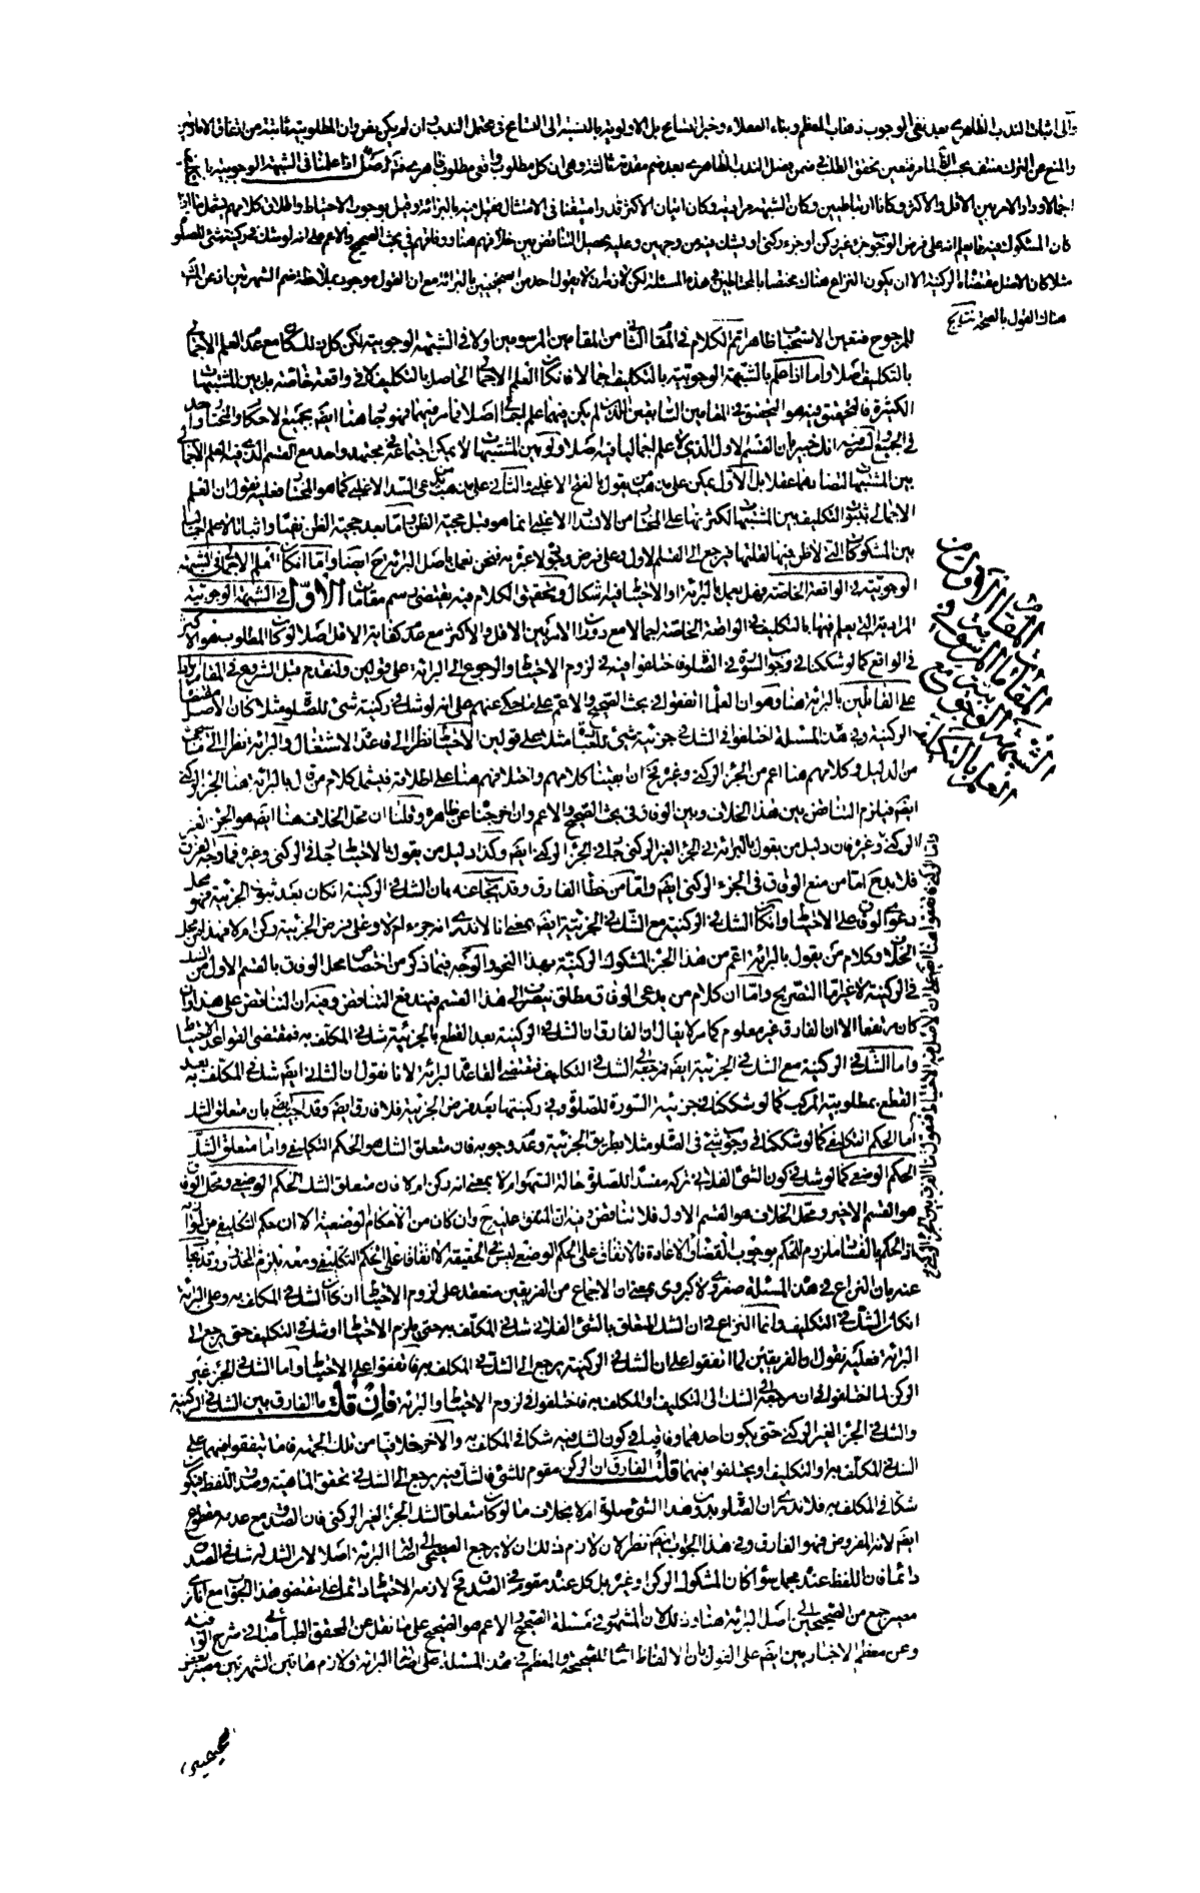 الى اثبات الندب الظاهرى بعد نفى الوجوب ذهاب المعظم وبناء العقلاء وخبر التسامح بل الاولوية بالنسبة الى التسامح فى محتمل الندب ان لم يكن بعض وان المطلوبية ثابتة من اتفاق الامامين
والمنع عن الترك منتف بحسب فتعين تحقق الطلب فى ضمن فصل الندب الظاهرى بعد ضم مقدمة ثالثة وهى ان كل مطلوب واقعى مطلوب ظاهرى اصل اذا علمنا فى الشبهة الوجوبية
اجمالا ودار الامر بين الاقل والاكثر وكانا ارتباطيين وكان الشبهة مرادية وكان اتيان الاكثر قدرا متيقنا فى الامتثال فقيل فيه بالبرائة وقيل بوجوب الاحتياط واطلاق كلامهم يشمل ما اذا
كان المشكوك فيه مما يعلم انه على فرض الوجوب جزء غير ركن او جزء ركنى او يشك فيه من وجهين وعليه يحصل التناقض بين خلافهم هنا ووفاقهم فى بحث الصحيح والاعم على انه لو شك فى ركنية شئ للصلوة
مثلا كان الاصل مقتضاه الركنية الا ان يكون النزاع هناك مختصا بالمحتاطين فى هذه المسئلة لكن لازمه ان لا يقول احد من الصحيحيين بالبرائة مع ان القول موجود بملاحظة ضم الشهرتين اذ عن المشهور
هناك القول بالصحة
للمرجوح فتعين الاستحباب ظاهرا تم الكلام فى المقام الثانى من المقامين المرسومين اولا فى الشبهة الوجوبية لكن كل ذلك كان مع عدم العلم الاجمالى
بالتكليف اصلا واما اذا علم بالشبهة الوجوبية بالتكليف اجمالا فان كان العلم الاجمالى الحاصل بالتكليف لا فى واقعة خاصة بل بين المشتبهات
الكثيرة فالتحقيق فيه هو التحقيق فى المقامين السابقين الذين لم يكن فيهما علم اجمالى اصلا فما مر فيهما فهو جار هنا ايضا بجميع الاحكام والمختار
فى الجميع اقول فيه انك خبير بان القسم الاول الذى لا علم اجماليا فيه اصلا ولو بين المشتبهات لا يمكن اجتماعه فى مجتهد واحد مع القسم الذى فيه العلم الاجمالى
بين المشتبهات لتضادهما عقلا بل الاول يمكن على مذهب من يقول بالفتح الاغلبى والثانى على مذهب مدعى السد الاغلبى كما هو المختار فعليه نقول ان العلم
الاجمالى بثبوت التكليف بين المشتبهات لكثرتها على المختار من الانسداد الاغلبى انما هو قبل حجية الظن اما بعد حجية الظن نفيا واثباتا فلا علم اجمالى
بين المشكوكات التى لا ظن فيها لقلتها فيرجع الى القسم الاول وعلى فرض وجود لا عبرة به فنحن نعمل باصل البرائة ح ايضا واما ان كان العلم الاجمالى فى الشبهة
الوجوبية فى الواقعة الخاصة فهل يعمل بالبرائة او الاحتياط فيه اشكال وتحقيق الكلام فيه يقتضى رسم مقامات الاول فى الشبهة الوجوبية
المرادية التى يعلم فيها بالتكليف فى الواقعة الخاصة اجمالا مع دوران الامر بين الاقل والاكثر مع عدم كفاية الاقل اصلا لو كان المطلوب هو الاكثر
فى الواقع كما لو شككنا فى وجوب السورة فى الصلوة فاختلفوا فيه فى لزوم الاحتياط والرجوع الى البرائة على قولين ولنقدم قبل الشروع فى المقام ايرادا
على القائلين بالبرائة هنا وهو ان العلماء اتفقوا فى بحث الصحيح والاعم على ما حكى عنهم على انه لو شك فى ركنية شئ للصلوة مثلا كان الاصل مقتضاه
الركنية وفى هذه المسئلة اختلفوا فى الشك فى جزئية شئ للعبادة مثلا على قولين الاحتياط نظرا الى قاعدة الاشتغال والبرائة نظرا الى ما سيجئ
من الدليل وكلامهم هنا اعم من الجزء الركنى وغيره فح ان بقينا كلامهم واختلافهم هنا على اطلاقه فيشمل كلام من قال بالبرائة هنا الجزء الركنى
ايضا فيلزم التناقض بين هذا الخلاف وبين الوفاق فى بحث الصحيح والاعم وان اخرجنا عن ظاهره وقلنا ان محل الخلاف هنا ايضا هو الجزء الغير
الركنى وغيره فان دليل من يقول بالبرائة فى الجزء الغير الركنى جار فى الجزء الركنى ايضا وكذا دليل من يقول بالاحتياط جار فى الركنى وغيره فما وجه الفرق
فلا بد ح اما من منع الوفاق فى الجزء الركنى ايضا واما من خطأ الفارق وقد يجاب عنه بان الشك فى الركنية ان كان بعد ثبوت الجزئية فهو محل
دعوى الوفاق على الاحتياط وان كان الشك فى الركنية مع الشك فى الجزئية ايضا بمعنى انا لا ندرى انه جزء ام لا وعلى فرض الجزئية ركن ام لا فهذا من محل
الخلاف وكلام من يقول بالبرائة اعم من هذا الجزء المشكوك الركنية بهذا النحو والوجه فيما ذكر من اختصاص محل الوفاق بالقسم الاول من الشك
فى الركنية لا غير اما التصريح واما ان كلام من يدعى الوفاق مطلق ينصرف الى هذا القسم فيندفع التناقض وفيه ان التناقض على هذا وان
كان مرتفعا الا ان الفارق غير معلوم كما مر لا يقال ان الفارق ان الشك فى الركنية بعد القطع بالجزئية شك فى المكلف به فمقتضى القواعد الاحتياط
واما الشك فى الركنية مع الشك فى الجزئية ايضا فمرجعه الى الشك فى التكليف فمقتضى القاعدة البرائة لانا نقول ان الثانى ايضا شك فى المكلف به بعد
القطع بمطلوبية المركب كما لو شككنا فى جزئية السورة للصلوة وفى ركنيتها بعد فرض الجزئية فلا فرق ايضا وقد اجيب ايضا بان متعلق الشك
اما الحكم التكليفى كما لو شككنا فى وجوب شئ فى الصلوة مثلا بطريق الجزئية وعدم وجوبه فان متعلق الشك هو الحكم التكليفى واما متعلق الشك
الحكم الوضعى كما لو شك فى كون الشئ الفلانى تركه مفسدا للصلوة حالة السهو ام لا بمعنى انه ركن ام لا فان متعلق الشك الحكم الوضعى ومحل الوفاق
هو القسم الاخير ومحل الخلاف هو القسم الاول فلا تناقض وفيه ان المتفق عليه ح وان كان من الاحكام الوضعية الا ان حكم التكليفى من لوازمه
اذ الحكم بالفساد ملزوم للحكم بوجوب القضاء والاعادة فالاتفاق على الحكم الوضعى ليس فى الحقيقة الا اتفاقا على الحكم التكليفى ومعه يلزم المحذور وقد يجاب
عنه بان النزاع فى هذه المسئلة صغروى لا كبروى بمعنى ان الاجماع من الفريقين منعقد على لزوم الاحتياط ان كان الشك فى المكلف به وعلى البرائة
ان كان الشك فى التكليف وانما النزاع فى ان الشك المتعلق بالشئ الفلانى شك فى المكلف به حتى يلزم الاحتياط او شك فى التكليف حتى يرجع الى
البرائة فعليه نقول بان الفريقين لما اتفقوا على ان الشك فى الركنية يرجع الى الشك فى المكلف به فاتفقوا على الاحتياط واما الشك فى الجزء غير
الركن لما اختلفوا فى ان مرجعه الى الشك الى التكليف او المكلف به فاختلفوا فى لزوم الاحتياط والبرائة فان قلت ما الفارق بين الشك فى الركنية
والشك فى الجزء الغير الركنى حتى يكون احدهما وفاقيا فى كون الشك فيه شكا فى المكلف به والآخر خلافيا من تلك الجهة فاما يتفقوا فيهما على
الشك فى المكلف به او التكليف او يختلفوا فيهما قلت الفارق ان الركن مقوم للشئ فالشك فيه يرجع الى الشك فى تحقق الماهية وصدق اللفظ فيكون
شكا فى المكلف به فلا ندرى ان الصلوة بدون هذا الشئ صلوة ام لا بخلاف ما لو كان متعلق الشك الجزء الغير الركنى فان الصدق مع عدمه مقطوع
ايضا لانه المفروض فهو الفارق وفى هذا الجواب ايضا نظر لان لازم ذلك ان لا يرجع الصحيحى الى اصالة البرائة اصلا لان الشك له شك فى الصدق
دائما فان اللفظ عنده مجمل سواء كان المشكوك الركن وغيره بل كل عنده مقوم فى الصدق فح لازمه الاحتياط دائما على مقتضى هذا الجواب مع انا نرى
من يرجع من الصحيحيين الى اصل البرائة هنا وذلك لان المشهور فى مسئلة الصحيح والاعم هو الصحيح على ما نقل عن المحقق الطباطبائى فى شرح الوافية
وعن معظم الاخباريين ايضا على القول بان الالفاظ اسام للصحيحة والمعظم فى هذه المسئلة على اصالة البرائة ولازم هاتين الشهرتين مصير بعض
المقام الاول من
المقامات المرتبة فى
الشبهة الوجوبية مع
العلم بالتكليف